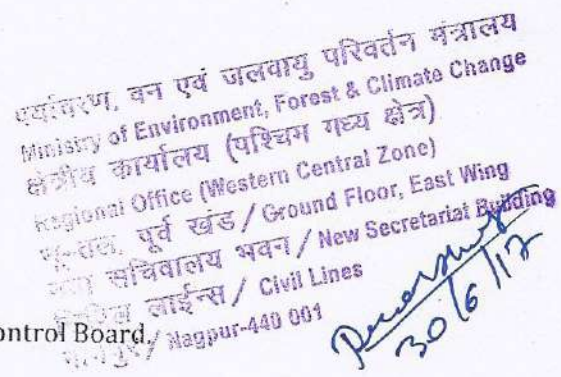 पर्यावरण, वन एवं जलवायु परिवर्तन मंत्रालय
Ministry of Environment, Forest & Climate Change
क्षेत्रीय कार्यालय (पश्चिम मध्य क्षेत्र)
Regional Office (Western Central Zone)
भू-तल, पूर्व खंड / Ground Floor, East Wing
सचिवालय भवन / New Secretariat Building
लाईन्स / Civil Lines
Nagpur-440 001
ontrol Board.
30/6/17